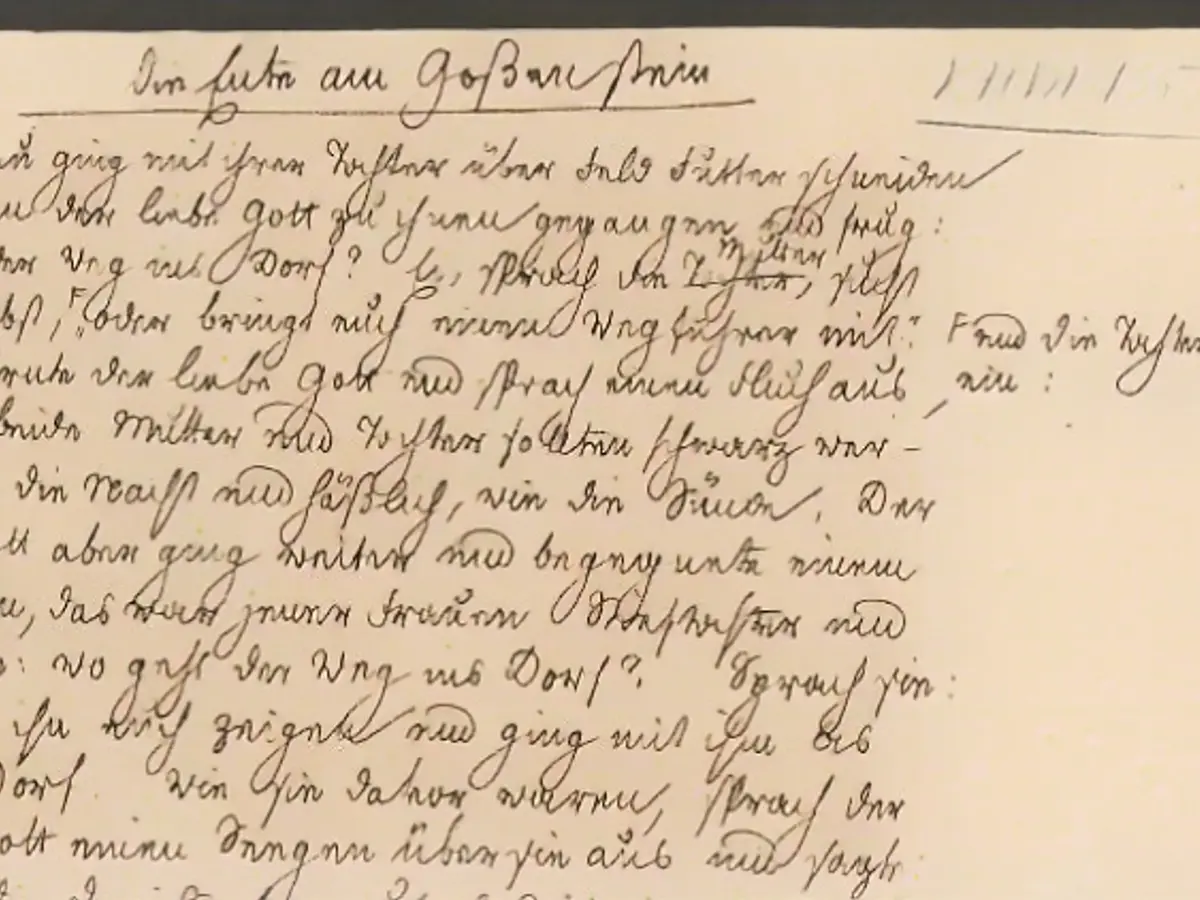 Die Ente am Goßenstein
ging mit ihrer Tochter über Feld Futter schneiden
der liebe Gott zu ihnen gegangen und frug:
der Weg ins Dorf? sprach die Tochter Mutter, sucht
oder bringt euch einen Wegführer mit." F und die Tochter
der liebe Gott und sprach einen Fluch aus, ein:
beide Mutter und Tochter sollten schwarz wer-
die Nacht und häßlich, wie die Sünde. Der
aber ging weiter und begegnete einem
das war jener Frauen Stieftochter und
wo geht der Weg ins Dorf? Sprach sie:
ihn euch zeigen und ging mit ihm bis
Dorf. Wie sie davor waren, sprach der
einen Seegen über sie aus und sagte